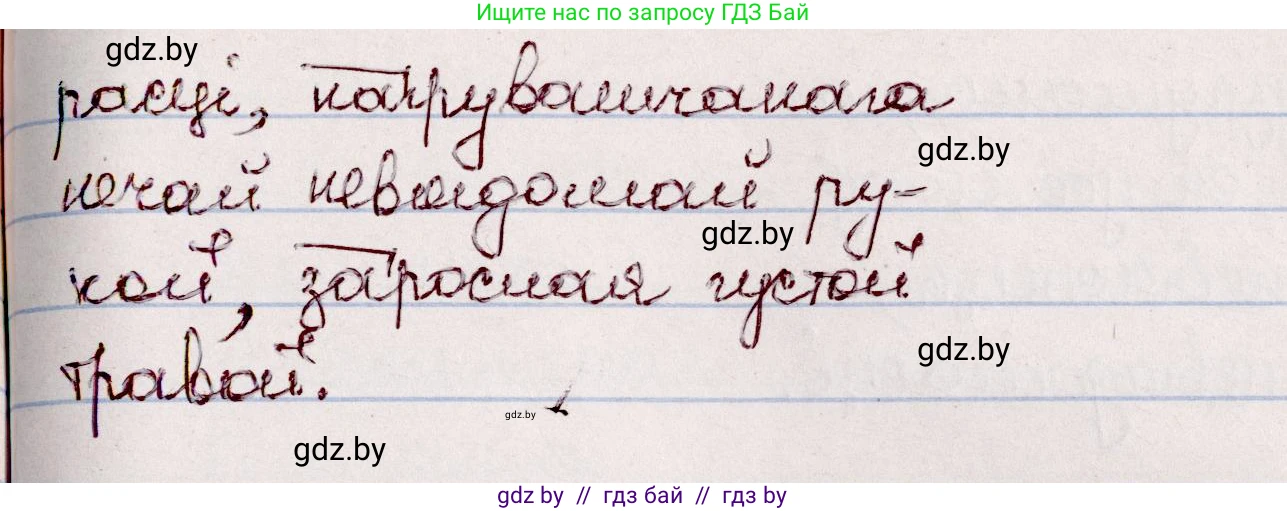 Ищите нас по запросу ГДЗ Бай
gdz.by
расці, патрувашчанага
gdz.by
нечай невядомай ру-
gdz.by
кой, заросная густой
gdz.by
травой.
gdz.by
gdz.by
gdz.by // гдз бай // гдз by